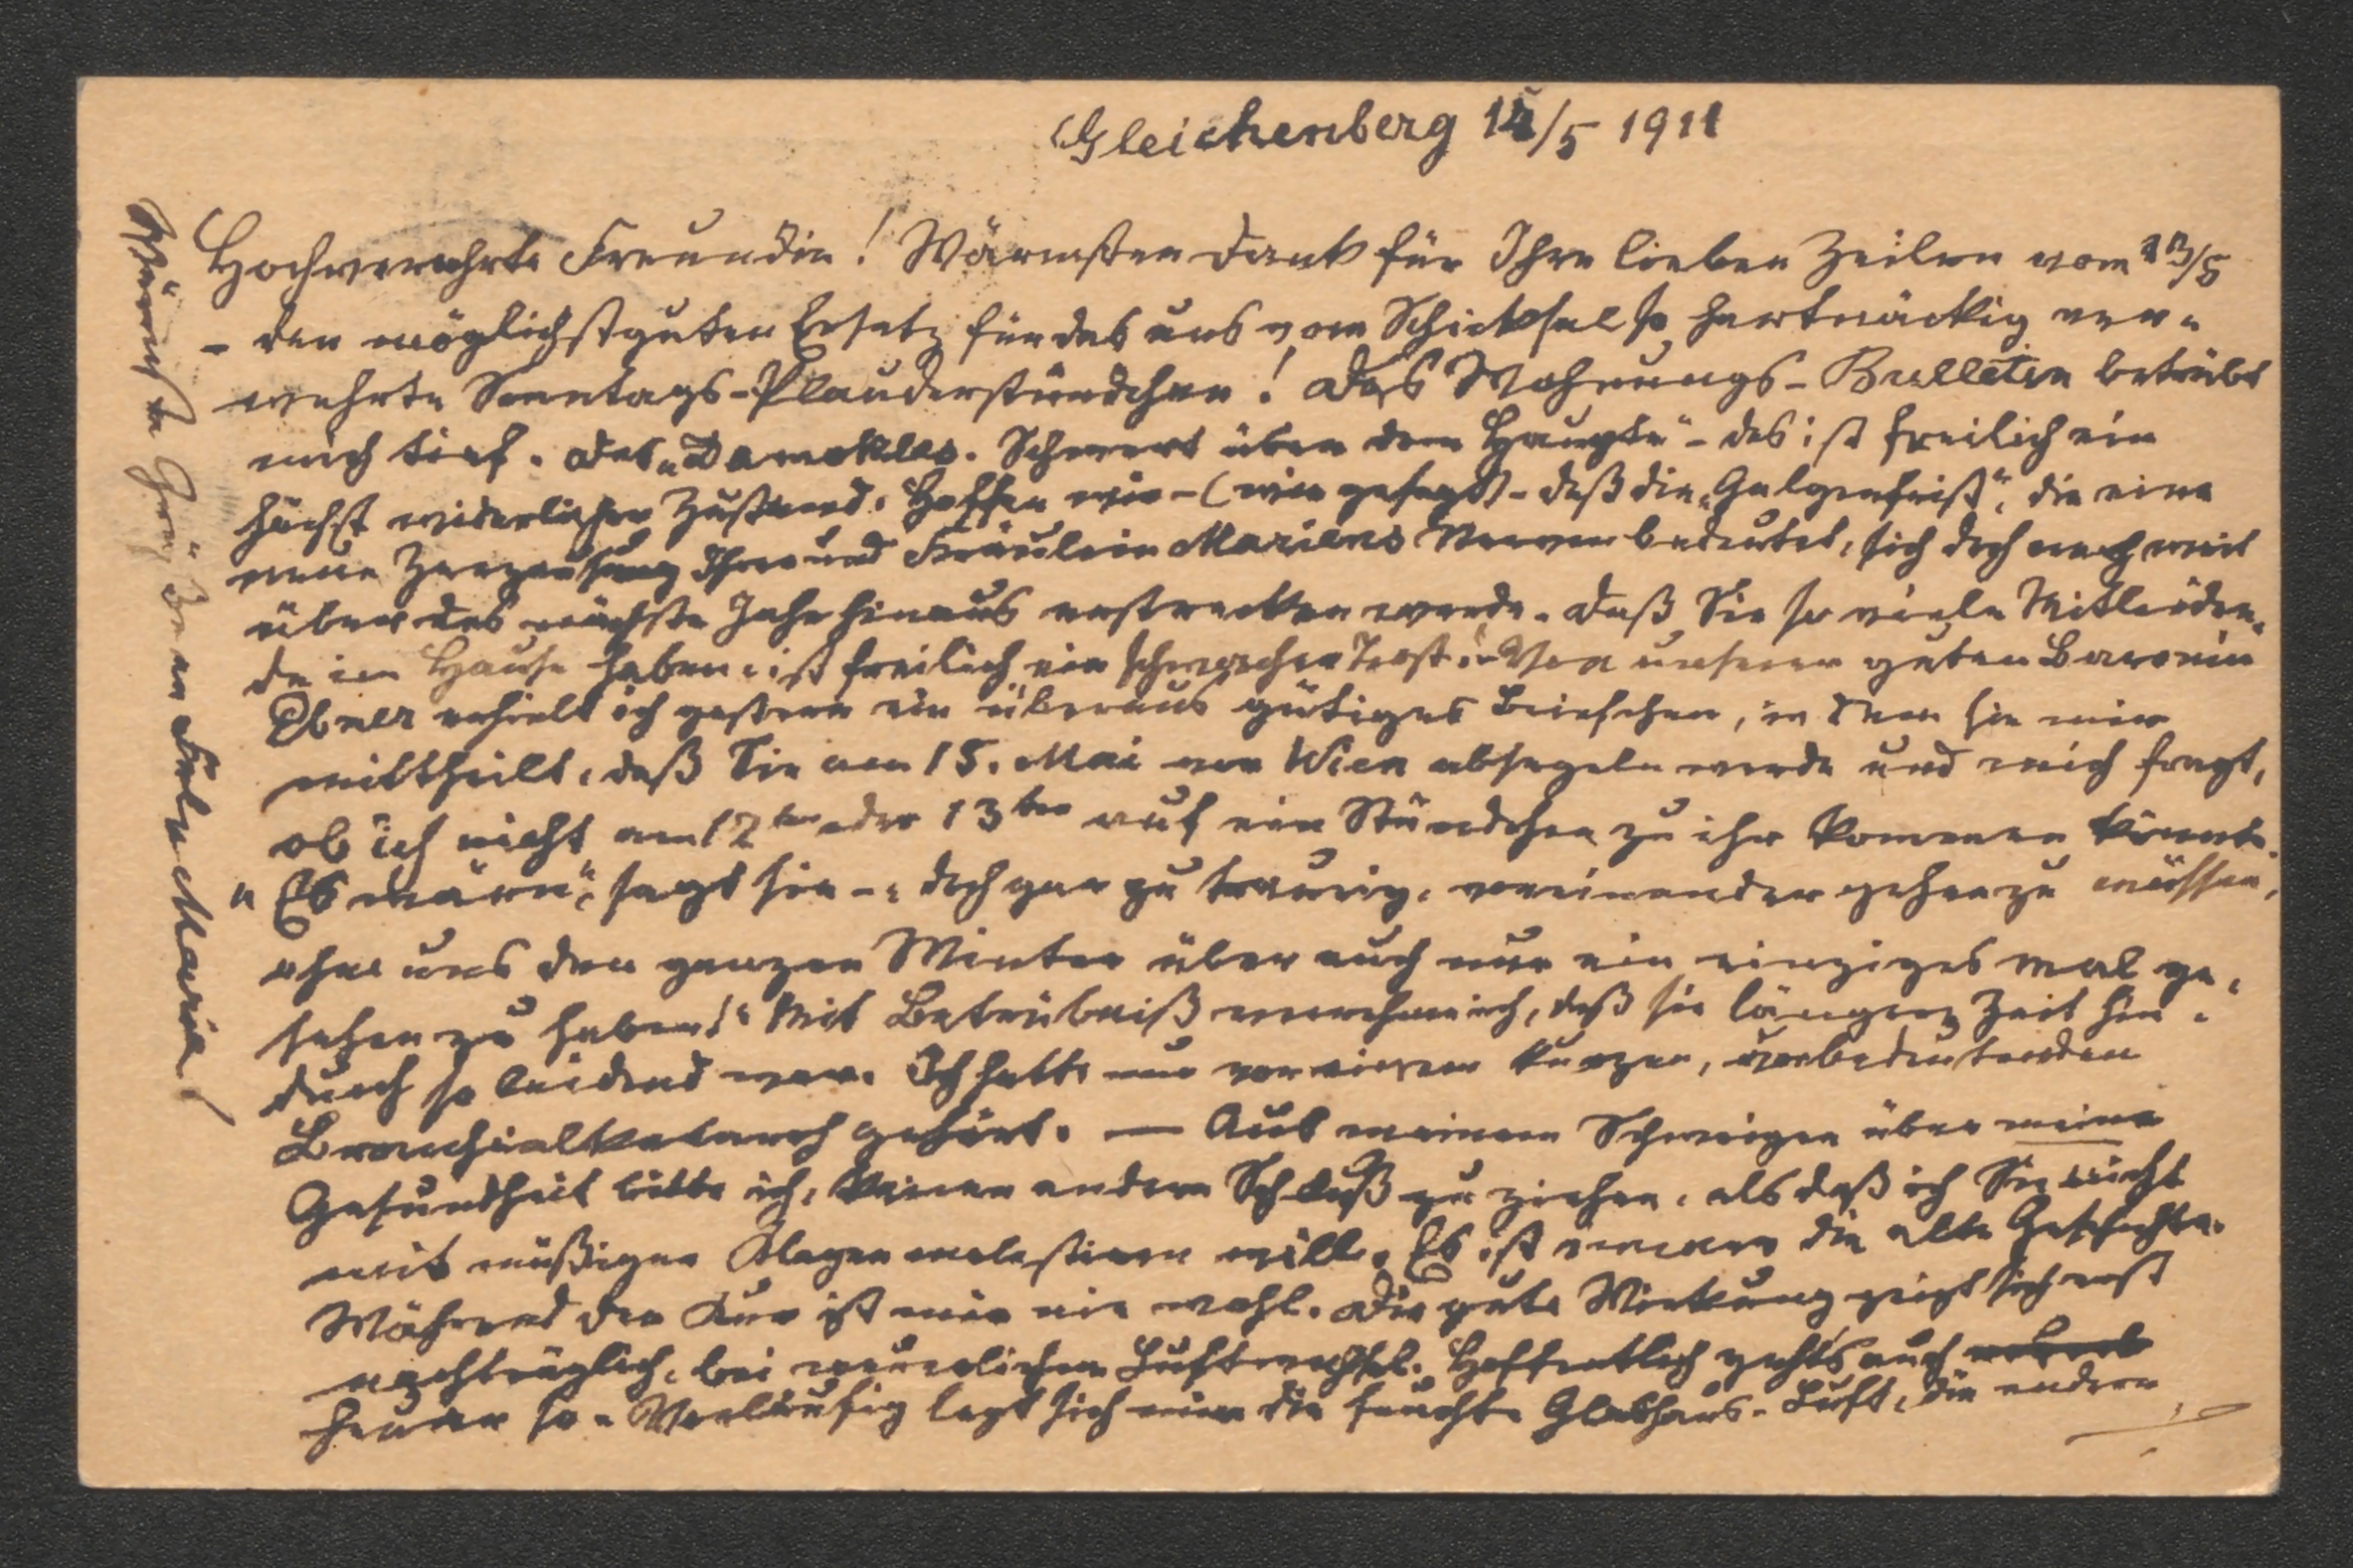 Gleichenberg 14/5 1911
Hochverehrte Freundin! Wärmsten Dank für Ihre lieben Zeilen vom 13/5
– den möglichst guten Ersatz für das uns vom Schicksal so hartnäckig ver-
wehrte Sonntags-Plauderstündchen! Das Wohnungs-Bulletin betrübt
mich tief. Das „Damokles-Schwert über dem Haupte" – das ist freilich ein
höchst widerlicher Zustand. Hoffen wir – (wie gesagt) – daß die „Galgenfrist", die eine
neue Zerzausung Ihrer und Fräulein Mariens Nerven bedeutet, sich doch noch weit
über das nächste Jahr hinaus erstrecken werde. Daß Sie so viele Mitleiden-
de im Hause haben, ist freilich ein schwacher Trost. – Von unserer guten Baronin
Ebner erhielt ich gestern ein überaus gütiges Briefchen, in dem sie mir
mittheilt, daß Sie am 15. Mai von Wien absegeln werde und mich fragt,
ob ich nicht am 12ten oder 13ten auf ein Stündchen zu ihr kommen könnte.
„Es wäre", sagt sie – „doch gar zu traurig, voneinander gehen zu müssen,
ohne uns den ganzen Winter über auch nur ein einziges mal ge-
sehen zu haben!" Mit Betrübniß vernehme ich, daß sie längere Zeit hin-
durch so leidend war. Ich hatte nur von einem kurzen, unbedeutenden
Bronchialkatarrh gehört. — Aus meinem Schweigen über meine
Gesundheit bitte ich, keinen andern Schluß zu ziehen, als daß ich Sie nicht
mit müßigen Klagen molestieren will. Es ist immer die alte Geschichte.
Während der Kur ist mir nie wohl. Die gute Wirkung zeigt sich erst
nachträglich, bei neuerlichem Luftwechsel. Hoffentlich geht's auch
heuer so. Vorläufig legt sich mir die feuchte Glashaus-Luft, die andern
Wärmste Grüße Ihnen Frln Marie!